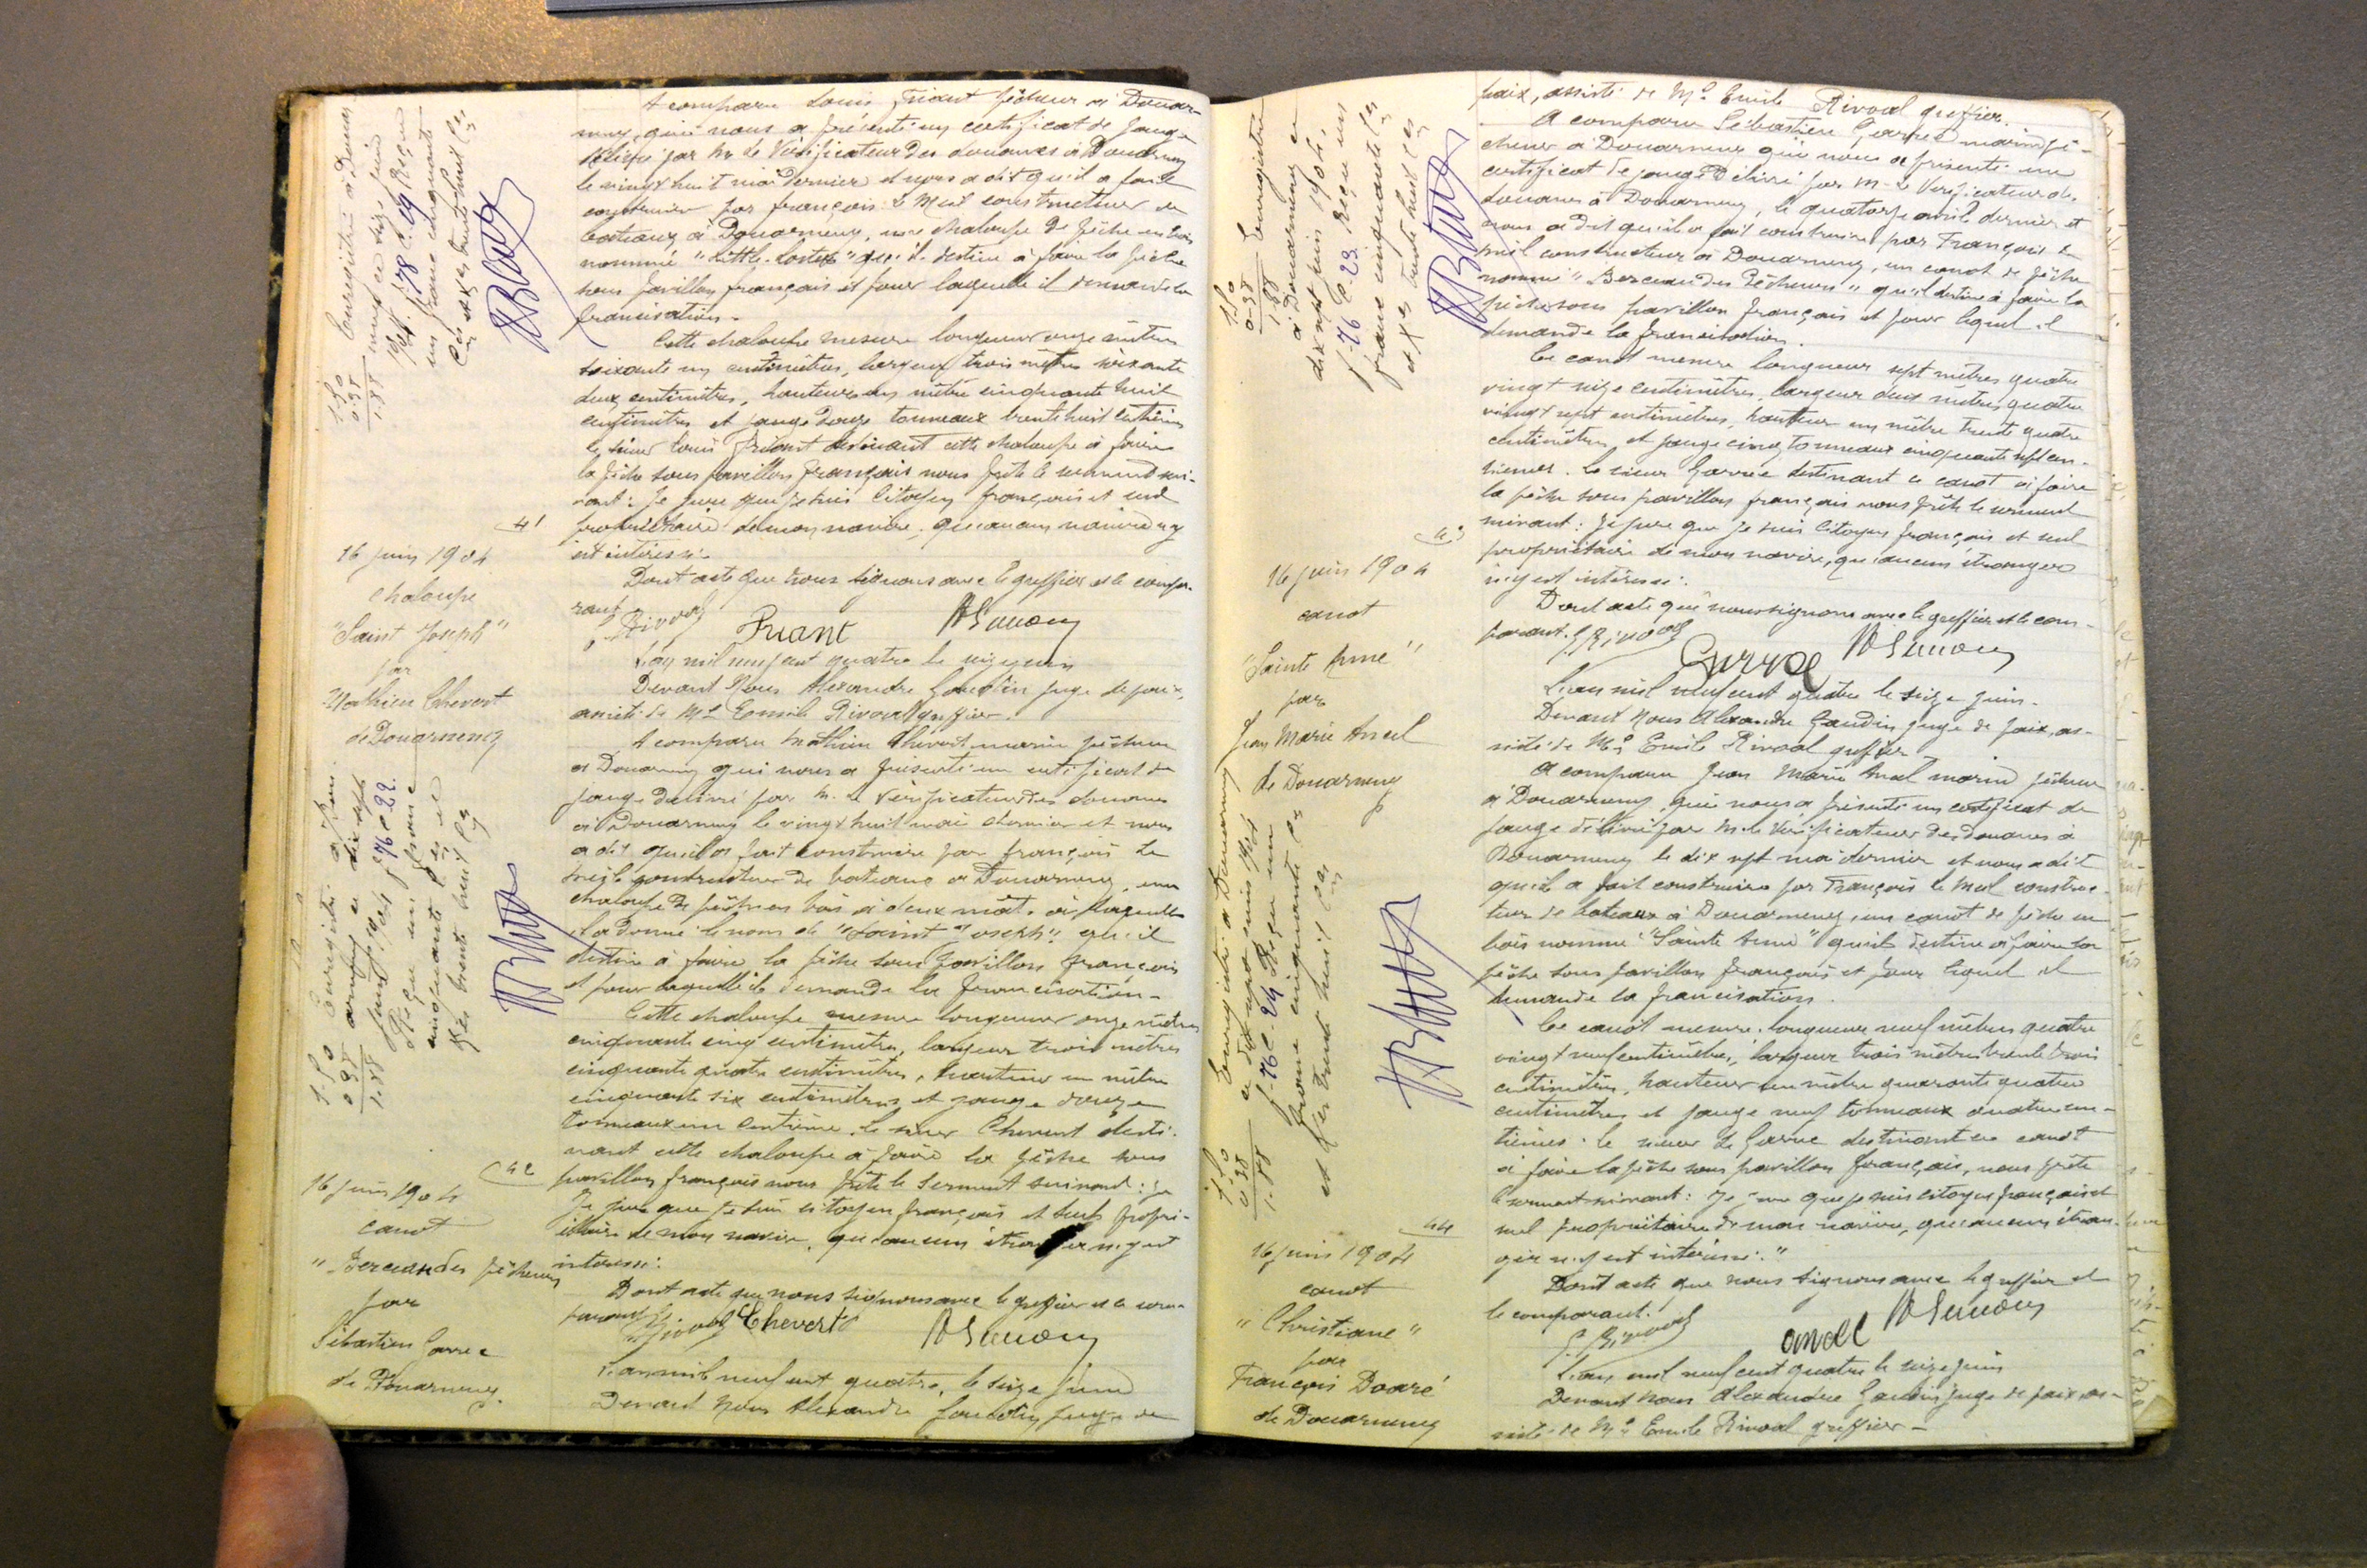 A comparu Louis Friant pêcheur à Douar-
nenez, qui nous a présenté un certificat de jauge
délivré par Mr le Vérificateur des douanes à Douarnenez
le vingt huit mai dernier et nous a dit qu'il a fait
construire par françois Le Meil constructeur de
bateaux à Douarnenez, une chaloupe de pêche en bois
nommé "Little
qu'il destine à faire la pêche
sous pavillon français et pour laquelle il demande la
francisation.
Cette chaloupe mesure longueur onze mètres
soixante un centimètres, largeur trois mètres soixante
deux centimètres, hauteur un mètre cinquante huit
centimètres et jauge douze tonneaux trente huit centièmes
le sieur Louis Friant destinant cette chaloupe à faire
la pêche sous pavillon français nous prête le serment sui-
vant: Je jure que je suis Citoyen français et seul
propriétaire de mon navire, qu'aucun
n'y
est intéressé.
Dont acte que nous signons avec le greffier et le compa-
rant.
E. Rivoal Friant
L'an mil neuf cent quatre le seize juin
Devant Nous Alexandre Gaudin juge de paix,
assisté de Me Emile Rivoal greffier.
A comparu Mathieu Chevert marin pêcheur
à Douarnenez qui nous a présenté un certificat de
jauge délivré par M. le Vérificateur des douanes
à Douarnenez le vingt huit mai dernier et nous
a dit qu'il a fait construire par françois Le
Meil constructeur de bateaux à Douarnenez, une
chaloupe de pêche en bois à deux mâts à laquelle
il a donné le nom de "Saint Joseph" qu'il
destine à faire la pêche sous pavillon français
et pour laquelle il demande la francisation.
Cette chaloupe mesure longueur onze mètres
cinquante cinq centimètres, largeur trois mètres
cinquante quatre centimètres, hauteur un mètre
cinquante six centimètres et jauge douze
tonneaux un centième. Le sieur Chevert desti-
nant cette chaloupe à faire la pêche sous
pavillon français nous prête le serment suivant: Je
Je jure que je suis citoyen français et seul propri-
étaire de mon navire, qu'aucun étranger n'y est
intéressé.
Dont acte que nous signons avec le greffier et le com-
parant.
E. Rivoal Chevert
L'an mil neuf cent quatre, le seize juin
Devant Nous Alexandre Gaudin juge de
Enregistré à Douar
nenez ce seize juin
1904 f. 78 c. 19 Reçu
un franc cinquante
Ces et Xes trente huit Ces
1.50
0.38
1.88
41
16 juin 1904
Chaloupe
"Saint Joseph"
par
Mathieu Chevert
de Douarnenez
Enregistré à Dou-
arnenez ce dix sept
juin 1904 f° 76 c. 22.
Reçu un franc
cinquante Ces et
Xes trente huit Ces
1.50
0.38
1.88
42
16 juin 1904
canot
"Berceau des Pêcheurs"
par
Sébastien Garrec
de Douarnenez.
paix, assisté de Me Emile Rivoal greffier.
A comparu Sébastien Garrec marin pê-
cheur à Douarnenez qui nous a présenté un
certificat de jauge délivré par M. le Vérificateur des
douanes à Douarnenez, le quatorze avril dernier et
nous a dit qu'il a fait construire par François Le
Meil constructeur à Douarnenez, un canot de pêche
nommé "Berceau des Pêcheurs" qu'il destine à faire la
pêche sous pavillon français et pour lequel il
demande la francisation.
Ce canot mesure longueur sept mètres quatre
vingt seize centimètres, largeur deux mètres quatre
vingt sept centimètres, hauteur un mètre trente quatre
centimètres, et jauge cinq tonneaux cinquante sept cen-
tièmes. Le sieur Garrec destinant ce canot à faire
la pêche sous pavillon français nous prête le serment
suivant: Je jure que je suis Citoyen français et seul
propriétaire de mon navire, qu'aucun étranger
n'y est intéressé.
Dont acte que nous signons avec le greffier et le com-
parant. E. Rivoal
L'an mil neuf cent quatre le seize juin.
Devant Nous Alexandre Gaudin juge de paix, as-
sisté de Me Emile Rivoal greffier
A comparu Jean Marie Ansel marin pêcheur
à Douarnenez, qui nous a présenté un certificat de
jauge délivré par M. le Vérificateur des Douanes à
Douarnenez le dix sept mai dernier et nous a dit
qu'il a fait construire par François le Meil construc-
teur de bateaux à Douarnenez, un canot de pêche en
bois nommé "Sainte Anne" qu'il destine à faire la
pêche sous pavillon français et pour lequel il
demande la francisation.
Ce canot mesure longueur neuf mètres quatre
vingt neuf centimètres, largeur trois mètres trente trois
centimètres, hauteur un mètre quarante quatre
centimètres et jauge neuf tonneaux quatre cen-
tièmes. le sieur Le Garrec destinant ce canot
à faire la pêche sous pavillon français, nous prête
le serment suivant: Je jure que je suis citoyen français et
seul propriétaire de mon navire, qu'aucun étran-
ger n'y est intéressé."
Dont acte que nous signons avec le greffier et
le comparant.
E. Rivoal
L'an mil neuf cent quatre le seize juin
Devant Nous Alexandre Gaudin juge de paix, as-
sisté de Me Emile Rivoal greffier
Enregistré
à Douarnenez ce
dix sept juin 1904,
f. 76 C. 23. Reçu un
franc cinquante Ces
et Xes trente huit Ces
1.50
0.38
1.88
43
16 juin 1904
canot
"Sainte Anne"
par
Jean Marie Ansel
de Douarnenez
Enregistré à Douarnenez
ce dix sept juin 1904
f. 76 C. 24 Reçu un
franc cinquante Ces
et Xes trente huit Ces
1.50
0.38
1.88
44
16 juin 1904
canot
"Christiane"
par
François Doaré
de Douarnenez